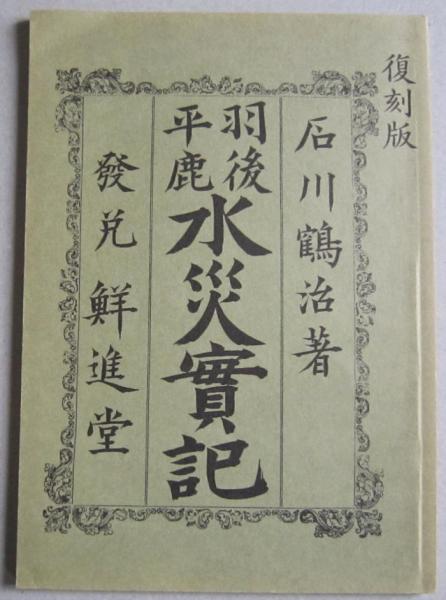 復刻版
石川鶴治著
羽後
平鹿
水災實記
發兌 鮮進堂